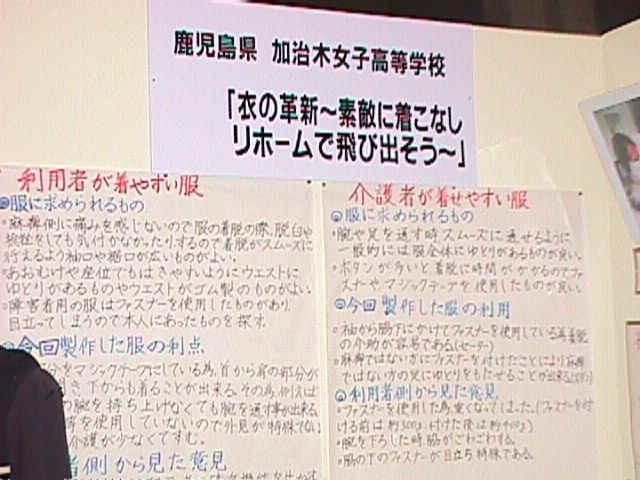 鹿児島県 加治木女子高等学校
「衣の革新～素敵に着こなし
リホームで飛び出そう～」
利用者が着やすい服
服に求められるもの
・麻痺側に痛みを感じないので服の着脱の際、脱臼や
骨折をしても気付かなかったりするので着脱がスムーズに
行えるよう袖口や裾口が広いものがよい。
・あおむけや座位でもはきやすいようにウエストに
ゆとりがあるものやウエストがゴム製のものがよい。
・障害者用の服はファスナーを使用したものがあり
目立ってしまうので本人にあったものを探す。
今回製作した服の利点
分をマジックテープにしている為、首から肩の部分が
き下からも着ることが出来る。その為、例えば
の腕を持ち上げなくても腕を通す事が出来る
を使用していないので外見が特殊でない
介護が少なくてすむ。
者側から見た意見
介護者が着せやすい服
服に求められるもの
・腕や足を通す時スムーズに通せるように
一般的には服全体にゆとりがあるものが良い。
・ボタンが多いと着脱に時間がかかるのでファ
スナーやマジックテープを使用したものが良い。
今回製作した服の利用
・袖から脇下にかけてファスナーを使用している為着脱
の介助が容易である(セーター)
・麻痺ではない方にファスナーを付けたことにより麻痺
ではない方の足にゆとりをもたせることが出来る
利用者側から見た意見
・ファスナーを使用した為重くなってしまった。(ファスナーを付
ける前は約300g、付けた後は約400g)
・腕を下ろした時脇がごわごわする。
・脇の下のファスナーが目立ち特殊である。